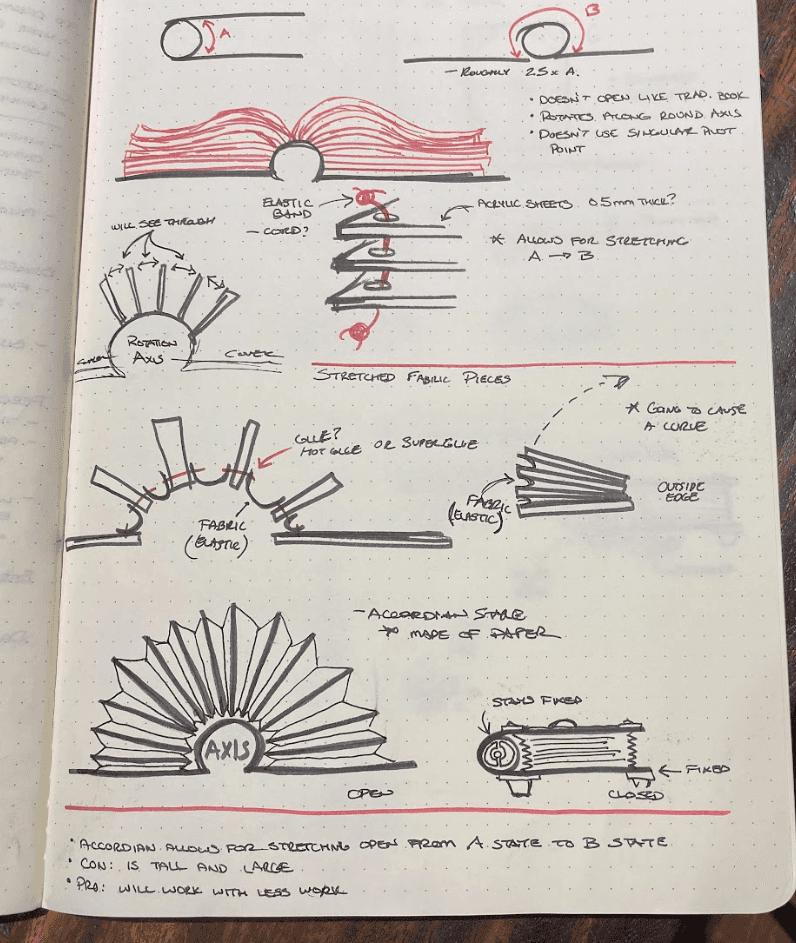 A
B
- ROUGHLY 2.5 x A.
• DOESN'T OPEN LIKE TRAD. BOOK
• ROTATES ALONG ROUND AXIS
• DOESN'T USE SINGULAR PIVOT
POINT
ELASTIC
BAND
- CORD?
ACRYLIC SHEETS 0.5mm THICK?
* ALLOWS FOR STRETCHING
A → B
WILL SEE THROUGH
ROTATION
AXIS
COVER
COVER
STRETCHED FABRIC PIECES
GLUE?
HOT GLUE OR SUPERGLUE
FABRIC
(ELASTIC)
* GOING TO CAUSE
A CURVE
FABRIC
(ELASTIC)
OUTSIDE
EDGE
- ACCORDIAN STYLE
* MADE OF PAPER
AXIS
OPEN
STAYS FIXED
FIXED
CLOSED
• ACCORDIAN ALLOWS FOR STRETCHING OPEN FROM A STATE TO B STATE
• CON: IS TALL AND LARGE
• PRO: WILL WORK WITH LESS WORK